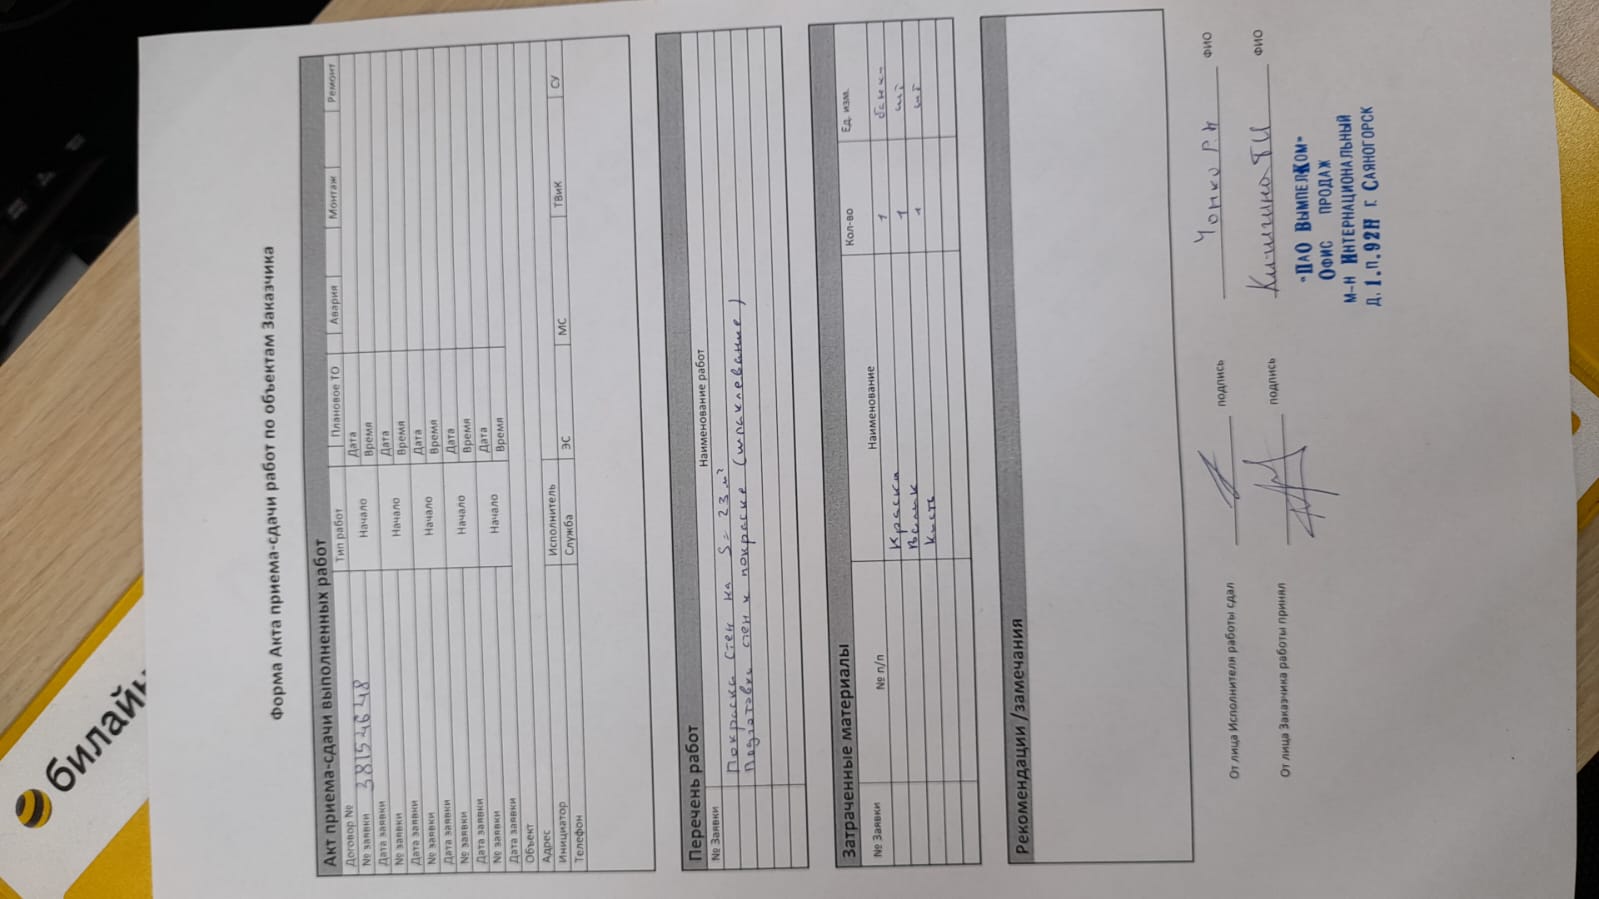 билайн
Форма Акта приема-сдачи работ по объектам Заказчика
Акт приема-сдачи выполненных работ
Договор № Тип работ Плановое ТО Авария Монтаж Ремонт
№ заявки 38154648 Начало Дата
Дата заявки Время
№ заявки Начало Дата
Дата заявки Время
№ заявки Начало Дата
Дата заявки Время
№ заявки Начало Дата
Дата заявки Время
№ заявки Начало Дата
Дата заявки Время
Объект
Адрес Исполнитель
Инициатор Служба ЭС МС ТВиК СУ
Телефон
Перечень работ
№ Заявки Наименование работ
Покраска стен на S = 23 м²
Подготовка стен к покраске (шпаклевание)
Затраченные материалы
№ Заявки № п/п Наименование Кол-во Ед. изм.
Краска 1
Валик 1 шт
Кисть 1 шт
Рекомендации /замечания
От лица Исполнителя работы сдал подпись ФИО
От лица Заказчика работы принял подпись ФИО
"ПАО ВымпелКом"
Офис продаж
м-н Интернациональный
д.1.п.92Н г. Саяногорск